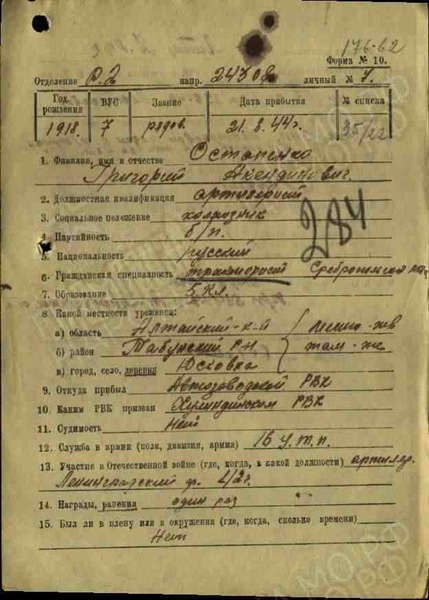 176-62
Форма № 10.
Отделение р. 2 напр. личный № 7.
Год рождения ВУС Звание Дата прибытия № списка
1918. 7 рядов. 21.8.44г. 35/22
1. Фамилия, имя и отчество Остапенко
Григорий
2. Должностная квалификация артилерист
3. Социальное положение колхозник
284
4. Партийность б/п.
5. Национальность русский
6. Гражданская специальность тракторист
7. Образование 5 кл.
8. Какой местности уроженец:
а) область Алтайский к-й
б) район Табунский р-н там-же
в) город, село, деревня
9. Откуда прибыл Автозаводской РВК
10. Каким РВК призван РВК
11. Судимость Нет
12. Служба в армии (полк, дивизия, армия) 16
13. Участие в Отечественной войне (где, когда, в какой должности) артилер.
Ленинградский ф. 42г.
14. Награды, ранения один раз
15. Был ли в плену или в окружении (где, когда, сколько времени)
Нет